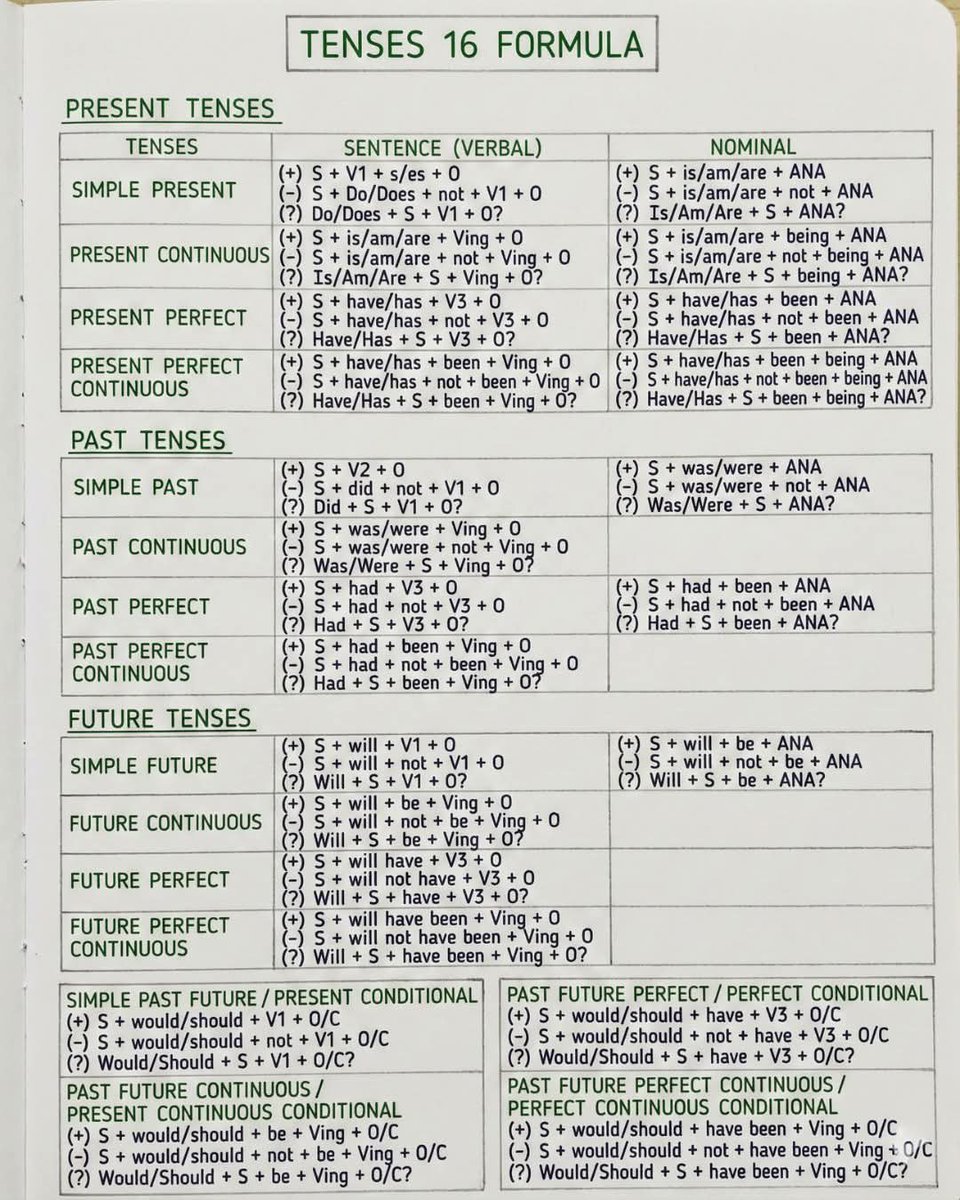 TENSES 16 FORMULA
PRESENT TENSES
TENSES SENTENCE (VERBAL) NOMINAL
SIMPLE PRESENT
(+) S + V1 + s/es + O
(-) S + Do/Does + not + V1 + O
(?) Do/Does + S + V1 + O?
(+) S + is/am/are + ANA
(-) S + is/am/are + not + ANA
(?) Is/Am/Are + S + ANA?
PRESENT CONTINUOUS
(+) S + is/am/are + Ving + O
(-) S + is/am/are + not + Ving + O
(?) Is/Am/Are + S + Ving + O?
(+) S + is/am/are + being + ANA
(-) S + is/am/are + not + being + ANA
(?) Is/Am/Are + S + being + ANA?
PRESENT PERFECT
(+) S + have/has + V3 + O
(-) S + have/has + not + V3 + O
(?) Have/Has + S + V3 + O?
(+) S + have/has + been + ANA
(-) S + have/has + not + been + ANA
(?) Have/Has + S + been + ANA?
PRESENT PERFECT
CONTINUOUS
(+) S + have/has + been + Ving + O
(-) S + have/has + not + been + Ving + O
(?) Have/Has + S + been + Ving + O?
(+) S + have/has + been + being + ANA
(-) S + have/has + not + been + being + ANA
(?) Have/Has + S + been + being + ANA?
PAST TENSES
SIMPLE PAST
(+) S + V2 + O
(-) S + did + not + V1 + O
(?) Did + S + V1 + O?
(+) S + was/were + ANA
(-) S + was/were + not + ANA
(?) Was/Were + S + ANA?
PAST CONTINUOUS
(+) S + was/were + Ving + O
(-) S + was/were + not + Ving + O
(?) Was/Were + S + Ving + O?
PAST PERFECT
(+) S + had + V3 + O
(-) S + had + not + V3 + O
(?) Had + S + V3 + O?
(+) S + had + been + ANA
(-) S + had + not + been + ANA
(?) Had + S + been + ANA?
PAST PERFECT
CONTINUOUS
(+) S + had + been + Ving + O
(-) S + had + not + been + Ving + O
(?) Had + S + been + Ving + O?
FUTURE TENSES
SIMPLE FUTURE
(+) S + will + V1 + O
(-) S + will + not + V1 + O
(?) Will + S + V1 + O?
(+) S + will + be + ANA
(-) S + will + not + be + ANA
(?) Will + S + be + ANA?
FUTURE CONTINUOUS
(+) S + will + be + Ving + O
(-) S + will + not + be + Ving + O
(?) Will + S + be + Ving + O?
FUTURE PERFECT
(+) S + will have + V3 + O
(-) S + will not have + V3 + O
(?) Will + S + have + V3 + O?
FUTURE PERFECT
CONTINUOUS
(+) S + will have been + Ving + O
(-) S + will not have been + Ving + O
(?) Will + S + have been + Ving + O?
SIMPLE PAST FUTURE / PRESENT CONDITIONAL
(+) S + would/should + V1 + O/C
(-) S + would/should + not + V1 + O/C
(?) Would/Should + S + V1 + O/C?
PAST FUTURE PERFECT / PERFECT CONDITIONAL
(+) S + would/should + have + V3 + O/C
(-) S + would/should + not + have + V3 + O/C
(?) Would/Should + S + have + V3 + O/C?
PAST FUTURE CONTINUOUS /
PRESENT CONTINUOUS CONDITIONAL
(+) S + would/should + be + Ving + O/C
(-) S + would/should + not + be + Ving + O/C
(?) Would/Should + S + be + Ving + O/C?
PAST FUTURE PERFECT CONTINUOUS /
PERFECT CONTINUOUS CONDITIONAL
(+) S + would/should + have been + Ving + O/C
(-) S + would/should + not + have been + Ving + O/C
(?) Would/Should + S + have been + Ving + O/C?